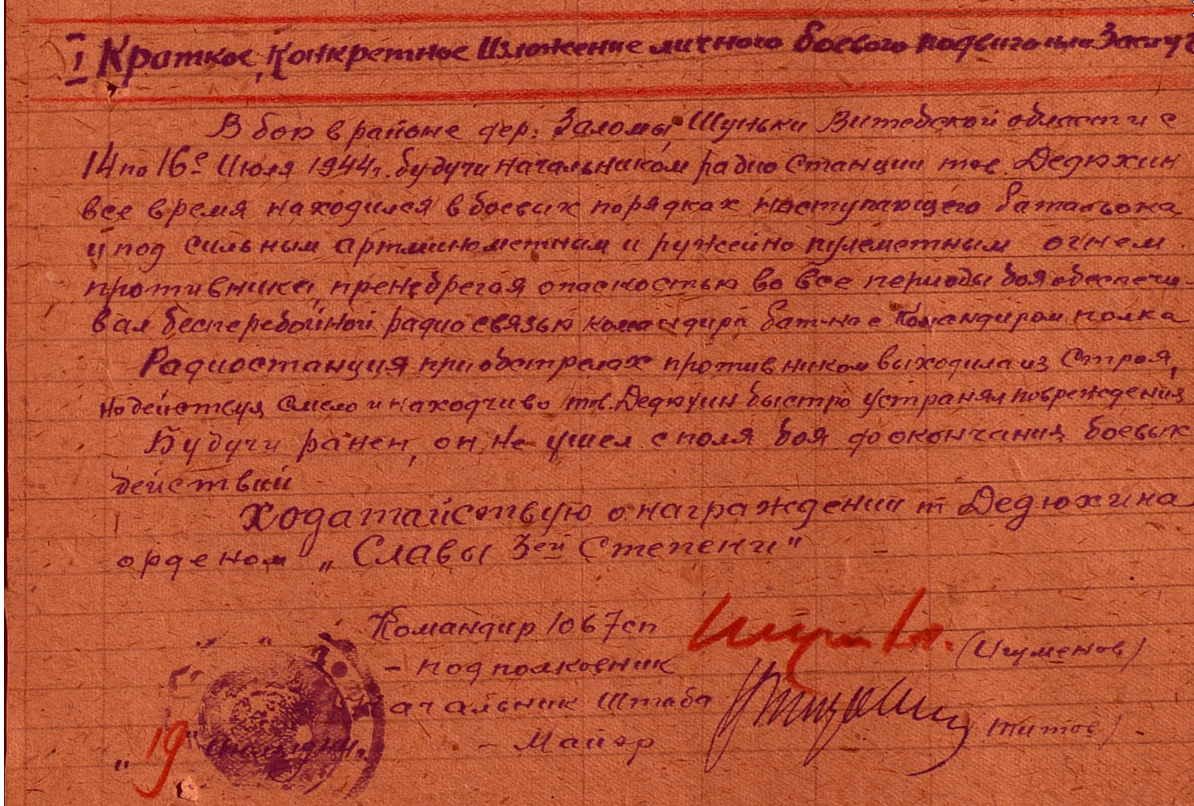 I Краткое, Конкретное Изложение личного боевого подвига или Заслуг
В бою в районе дер: Заломы, Шуньки Витебской области с
14 по 16е Июля 1944г. будучи начальником радио станции тов. Дедюхин
все время находился в боевых порядках наступающего батальона
и под сильным артминометным и ружейно пулеметным огнем
противника, пренебрегая опасностью во все периоды боя обеспечи-
вал бесперебойной радио связью командира бат-на с Командиром полка
Радиостанция при обстрелах противником выходила из Строя,
но действуя смело и находчиво тов. Дедюхин быстро устранял повреждения
Будучи ранен, он, не ушел с поля боя до окончания боевых
действий
Ходатайствую о награждении т Дедюхина
орденом „Славы 3ей Степени"
Командир 1067сп
- подполковник (Игуменов)
Начальник Штаба
- Майор (Титов)
„19"